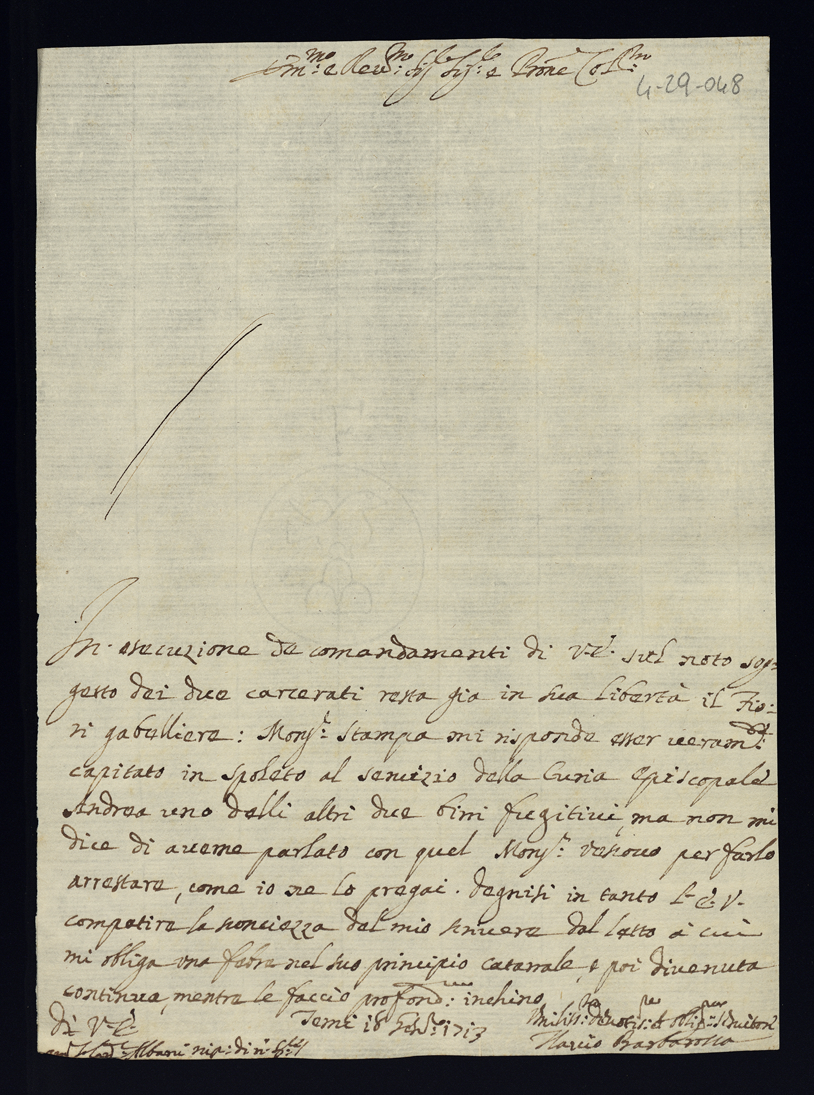 Em.mo e Reu.mo Sig.re Sig.re e Prone Col.mo
4-29-048
In esecuzione de comandamenti di V.E. sul noto sog=
getto dei due carcerati resta gia in sua libertà il Fio=
ri gabelliere: Mons.r Stampa mi risponde esser ueram.te
capitato in Spoleto al seruizio della Curia Episcopale
Andrea uno delli altri due birri fugitiui, ma non mi
dice di auerne parlato con quel Mons.r Vescouo per farlo
arrestare, come io ne lo pregai. Degnisi in tanto l'E.V.
compatire la sconciezza del mio scriuere dal letto à cui
mi obliga una febre nel suo principio catarrale, e poi diuenuta
continua, mentre le faccio profond.mo inchino
di V.E.
Terni 18 Feb.ro 1713
Vmilis.mo Deuotis.mo et oblig.mo Seruitore
Card.le Albani nip: di N. S.re
Marcio Barbarossa